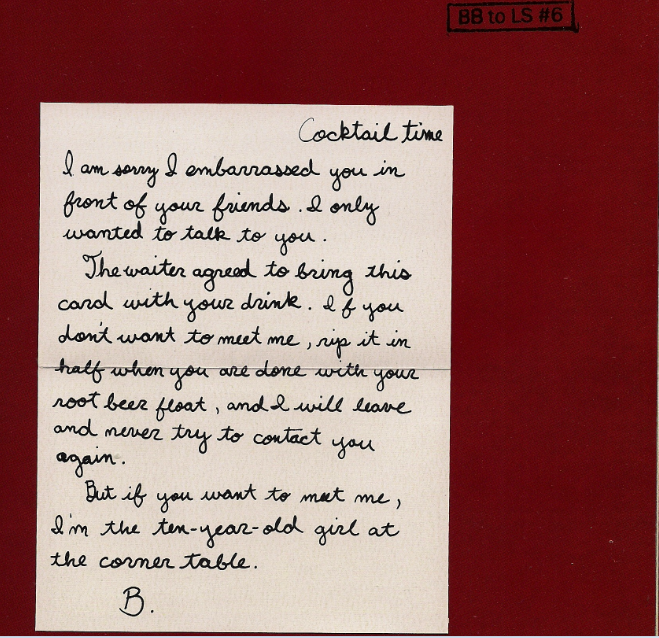 BB to LS #6
Cocktail time
I am sorry I embarrassed you in
front of your friends. I only
wanted to talk to you.
The waiter agreed to bring this
card with your drink. If you
don't want to meet me, rip it in
half when you are done with your
root beer float, and I will leave
and never try to contact you
again.
But if you want to meet me,
I'm the ten-year-old girl at
the corner table.
B.